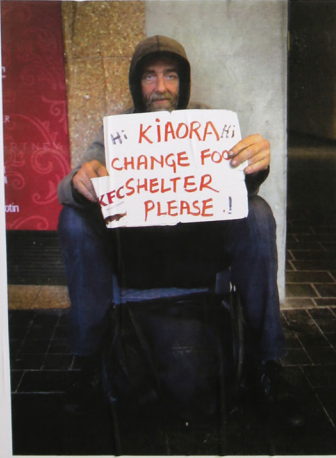 Hi KIAORA Hi
CHANGE FOO
KFC SHELTER
PLEASE .!
otin